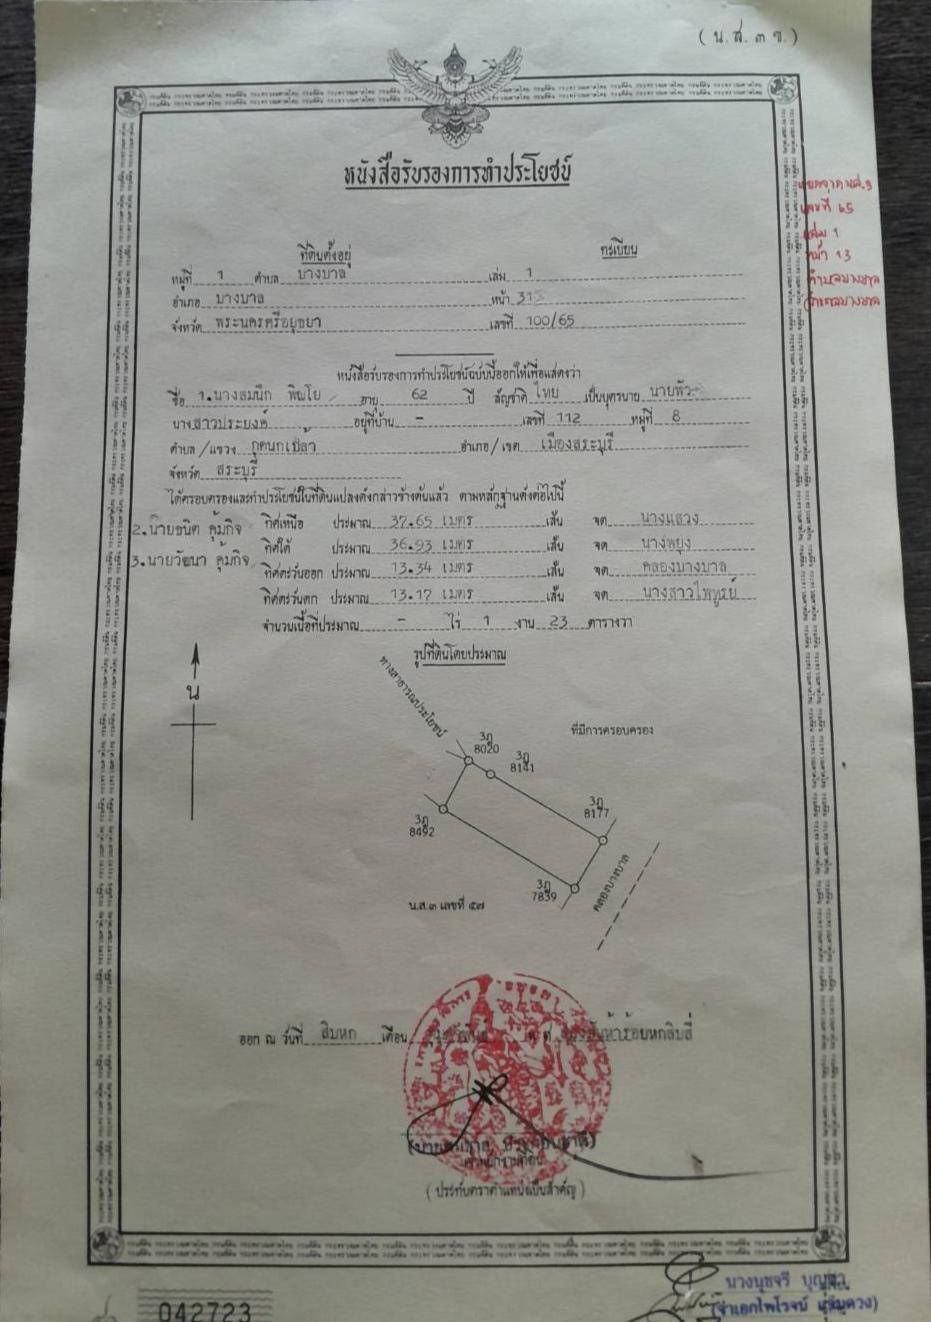 (น.ส.๓ ข.)
หนังสือรับรองการทำประโยชน์
ที่ดินตั้งอยู่ ทะเบียน
หมู่ที่ 1 ตำบล บางบาล เล่ม 1
อำเภอ บางบาล หน้า
จังหวัด พระนครศรีอยุธยา เลขที่ 100/65
เลขที่ ๖๕
เล่ม 1
หน้า ๑3
หนังสือรับรองการทำประโยชน์ฉบับนี้ออกให้เพื่อแสดงว่า
ชื่อ 1.นางสมนึก พิญโย อายุ 62 ปี สัญชาติ ไทย เป็นบุตรนาย พัว
นาง สาวประยงค์ อยู่ที่บ้าน - เลขที่ 112 หมู่ที่ 8
ตำบล/แขวง กุดนกเปล้า อำเภอ/เขต เมืองสระบุรี
จังหวัด สระบุรี
ได้ครอบครองและทำประโยชน์ในที่ดินแปลงดังกล่าวข้างต้นแล้ว ตามหลักฐานดังต่อไปนี้
2.นายชนิต คุ้มกิจ
3.นายวัฒนา คุ้มกิจ
ทิศเหนือ ประมาณ 37.65 เมตร เส้น จด นางแฮวง
ทิศใต้ ประมาณ 36.93 เมตร เส้น จด นางพยุง
ทิศตะวันออก ประมาณ 13.34 เมตร เส้น จด คลองบางบาล
ทิศตะวันตก ประมาณ 13.17 เมตร เส้น จด นางสาวไพฑูรย์
จำนวนเนื้อที่ประมาณ - ไร่ 1 งาน 23 ตารางวา
รูปที่ดินโดยประมาณ
น
ทางสาธารณประโยชน์
ที่มีการครอบครอง
3ฎ
8020
3ฎ
8141
3ฎ
8177
3ฎ
8492
3ฎ
7839
คลองบางบาล
น.ส.๓ เลขที่ ๕๗
ออก ณ วันที่ สิบหก เดือน กุมภาพันธ์ พ.ศ. สองพันห้าร้อยหกสิบสี่
(ประทับตราตำแหน่งเป็นสำคัญ)
042723
นางนุชจรี
(จ่าเอกไพโรจน์